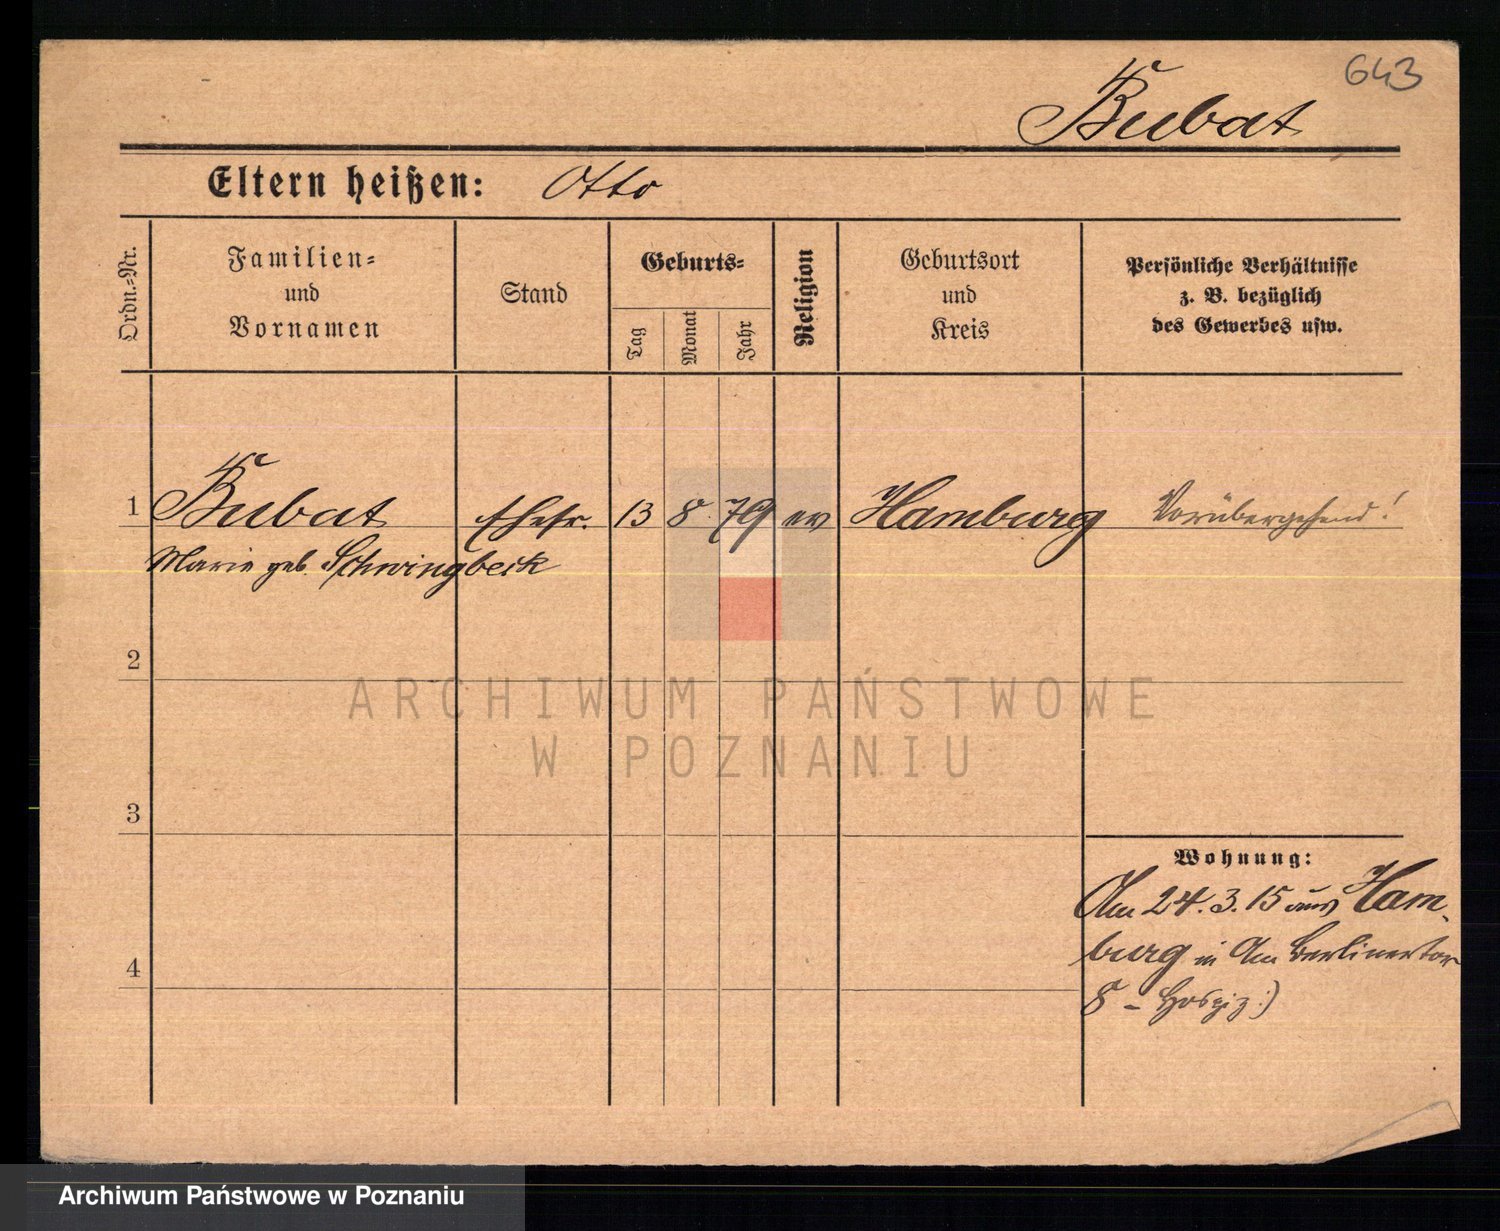 643
Bubat
Eltern heißen: Otto
Ordn.-Nr.
Familien-
und
Vornamen
Stand
Geburts-
Tag
Monat
Jahr
Religion
Geburtsort
und
Kreis
Persönliche Verhältnisse
z. B. bezüglich
des Gewerbes usw.
1 Bubat Ehefr. 13 8. 79 ev Hamburg Vorübergehend!
Marie geb. Schwingbeck
2
ARCHIWUM PAŃSTWOWE
W POZNANIU
3
Wohnung:
Am 24. 3. 15 aus Ham-
burg in Am Berlinertor
4
8 - Hospiz :)
Archiwum Państwowe w Poznaniu